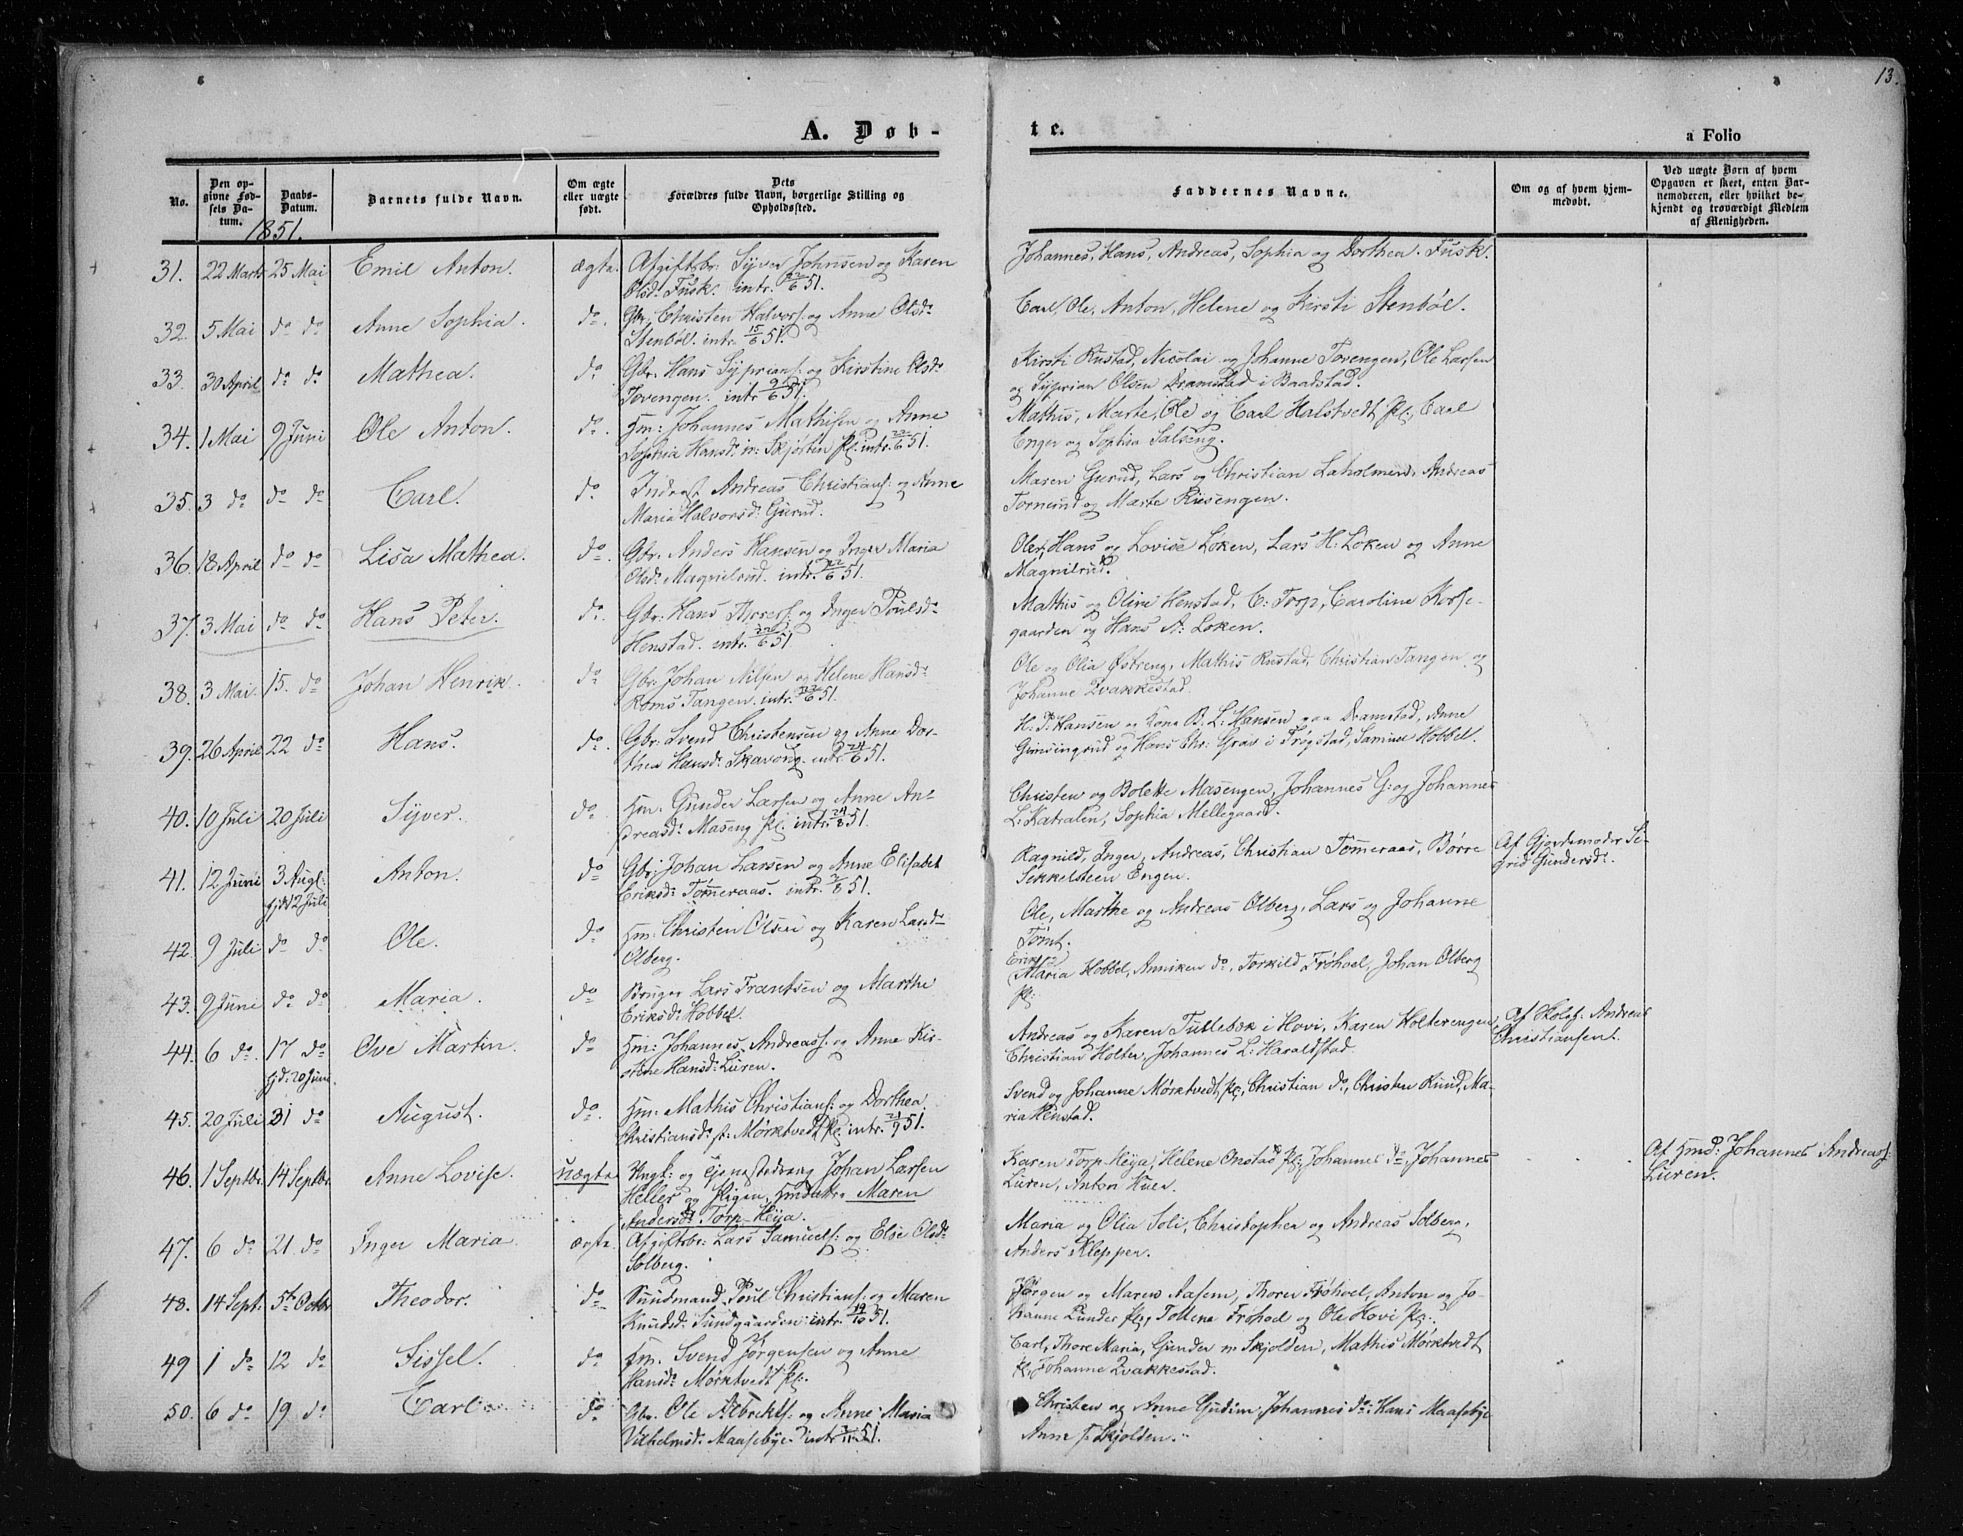 13.
A. Døb-
te.
a Folio
No.
Den opgivne Fødsels Datum.
Daabs-Datum.
Barnets fulde Navn.
Om ægte eller uægte født.
Dets Forældres fulde Navn, borgerlige Stilling og Opholdssted.
Faddernes Navne.
Om og af hvem hjemmedøbt.
Ved uægte Børn af hvem Opgaven er skeet, enten Barnemoderen, eller hvilket bekjendt og troværdigt Medlem af Menigheden.
1851.
31. 22 Marts 25 Mai Emil Anton. ægte. Afgiftsbr: Syver Johnsen og Karen
Olsd: Fusk. intr. 22/6 51.
Johannes, Hans, Andreas, Sophia og Dorthea. Fusk.
32. 5 Mai do do Anne Sophia. do. Gbr: Christen Halvors: og Anne Olsd:
Stenbøl. intr. 15/6 51.
Carl, Ole, Anton, Helene og Kirsti Stenbøl.
33. 30 April do do Mathea. do Gbr. Hans Syprians: og Kirstine Olsd:
Tovengen. intr 9/6 51.
Kirsti Rustad, Nicolai og Johanne Tovengen, Ole Larsen
og Syprian Olsen Dramstad i Baadstad.
34. 1 Mai 9 Juni Ole Anton. do. Hm: Johannes Mathisen og Anne
Sophia Hansd: n: Skjørtin pl: intr. 22/6 51.
Mathis, Marte, Ole og Carl Halstvedt pl:, Carl
Enger og Sophia Salseng.
35. 3 do do do Carl. do. Inderst Andreas Christians: og Anne
Maria Halvorsd: Gurud.
Maren Gurud, Lars og Christian Laholmen, Andreas
Tornund og Marte Risengen.
36. 18 April do do Lisa Mathea. do. Gbr. Anders Hansen og Inger Maria
Olsd: Magnilrud. intr. 22/6 51.
Ole, Hans og Lovise Løken, Lars H: Løken og Anne
Magnilrud.
37. 3 Mai do do Hans Peter. do. Gbr: Hans og Inger Poulsd:
Henstad. intr. 22/6 51
Mathis og Oline Henstad, C: Torp, Caroline Korse-
gaarden og Hans A: Løken.
38. 3 Mai. 15. do Johan Henrik. do Gbr: Johan Nilsen og Helene Hansd:
Roms Tangen. intr. 22/6 51.
Ole og Olia Østreng, Mathis Rustad, Christian Tangen og
Johanne Qvakkestad.
39. 26 April 22 do Hans. do. Gbr: Svend Christensen og Anne Dor-
thea Hansd: Skavong. intr. 24/6 51.
H. P. Hansen og Kone B. L: Hansen paa Dramstad, Anne
Gimsingrud og Hans Chr: Grav i Trøgstad, Samuel Hobbel.
40. 10 Juli 20 Juli Syver. do. Hm: Gunder Larsen og Anne An-
dreasd: Maseng pl. intr. 24/8 51.
Christen og Bolette Masengen, Johannes G: og Johannes
L: Katralen, Sophia Mellegaard.
41. 12 Juni 3 Augt: Anton. do Gbr: Johan Larsen og Anne Elisabet
hjd: 2 Juli
Eriksd: Tømeraas. intr. 51.
Ragnild, Inger, Andreas, Christian Tømeraas, Børre
Sekkelsteen Engen.
Af Gjordemoder Si-
grid Gundersd:
42. 9 Juli do do Ole. do Hm: Christen Olsen og Karen Larsd:
Olberg.
Ole, Marthe og Andreas Olberg, Lars og Johanne
Tømt.
43. 9 Juni do do Maria. do Bruger Lars Frantsen og Marthe
Eriksd: Hobbel.
Erik og
Maria Hobbel, Anniken do, Torkild Frøhoel, Johan Olberg
pl:
44. 6 do. 17 do Ove Martin. do Hm: Johannes Andreass: og Anne Kir-
hjd: 20 Juni.
stine Hansd: Luren.
Andreas og Karen Tullebæk i Hovi, Karen Holterengen,
Christian Holter, Johannes L: Haraldstad.
Af Skolel. Andreas
Christiansen.
45. 20 Juli 31 do August. do. Hm: Mathis Christians: og Dorthea
Christiansd: s: Mørktvedt pl: intr. 21/9 51.
Svend og Johanne Mørktvedt pl:, Christian do, Christen Rund, Ma-
ria Henstad.
46. 1 Septbr. 14 Septbr. Anne Lovise. uægte Ungk: og Tjenestedreng Johan Larsen
Heller og Pigen, Hmdattr. Maren
Andersd: Torp-Heija.
Karen Torp-Heija, Helene Onstad pl:, Johannes do, Johannes
Luren, Anton Kuer.
Af Hmd: Johannes Andreass:
Luren.
47. 6 do 21 do Inger Maria ægte. Afgiftsbr: Lars Samuels: og Else Olsd:
Solberg.
Maria og Olia Soli, Christopher og Andreas Solberg,
Anders Klepper.
48. 14 Sept. 5te Octbr Theodor. do Sundmand Poul Christians: og Maren
Knudsd: Sundgaarden intr. 19/10 51.
Jørgen og Maren Aasem, Thorer Frøhoel, Anton og Jo-
hanne Lunder pl:, Tollena Frøhoel og Ole Hovi pl:.
49 1 do 12 do Sissel. do Hm. Svend Jørgensen og Anne
Hansd: Mørktvedt pl:.
Carl, Thore Maria, Gunder n: Skjolden, Mathis Mørktvedt
pl:, Johanne Qvakkestad.
50. 6 do 19 do Carl do Gbr. Ole Albrikts: og Anne Maria
Vilhelmsd: Maasebye. intr. 51.
Christen og Anne Gudim, Johannes do: Hans Maasebye
Anne s: Skjolden.